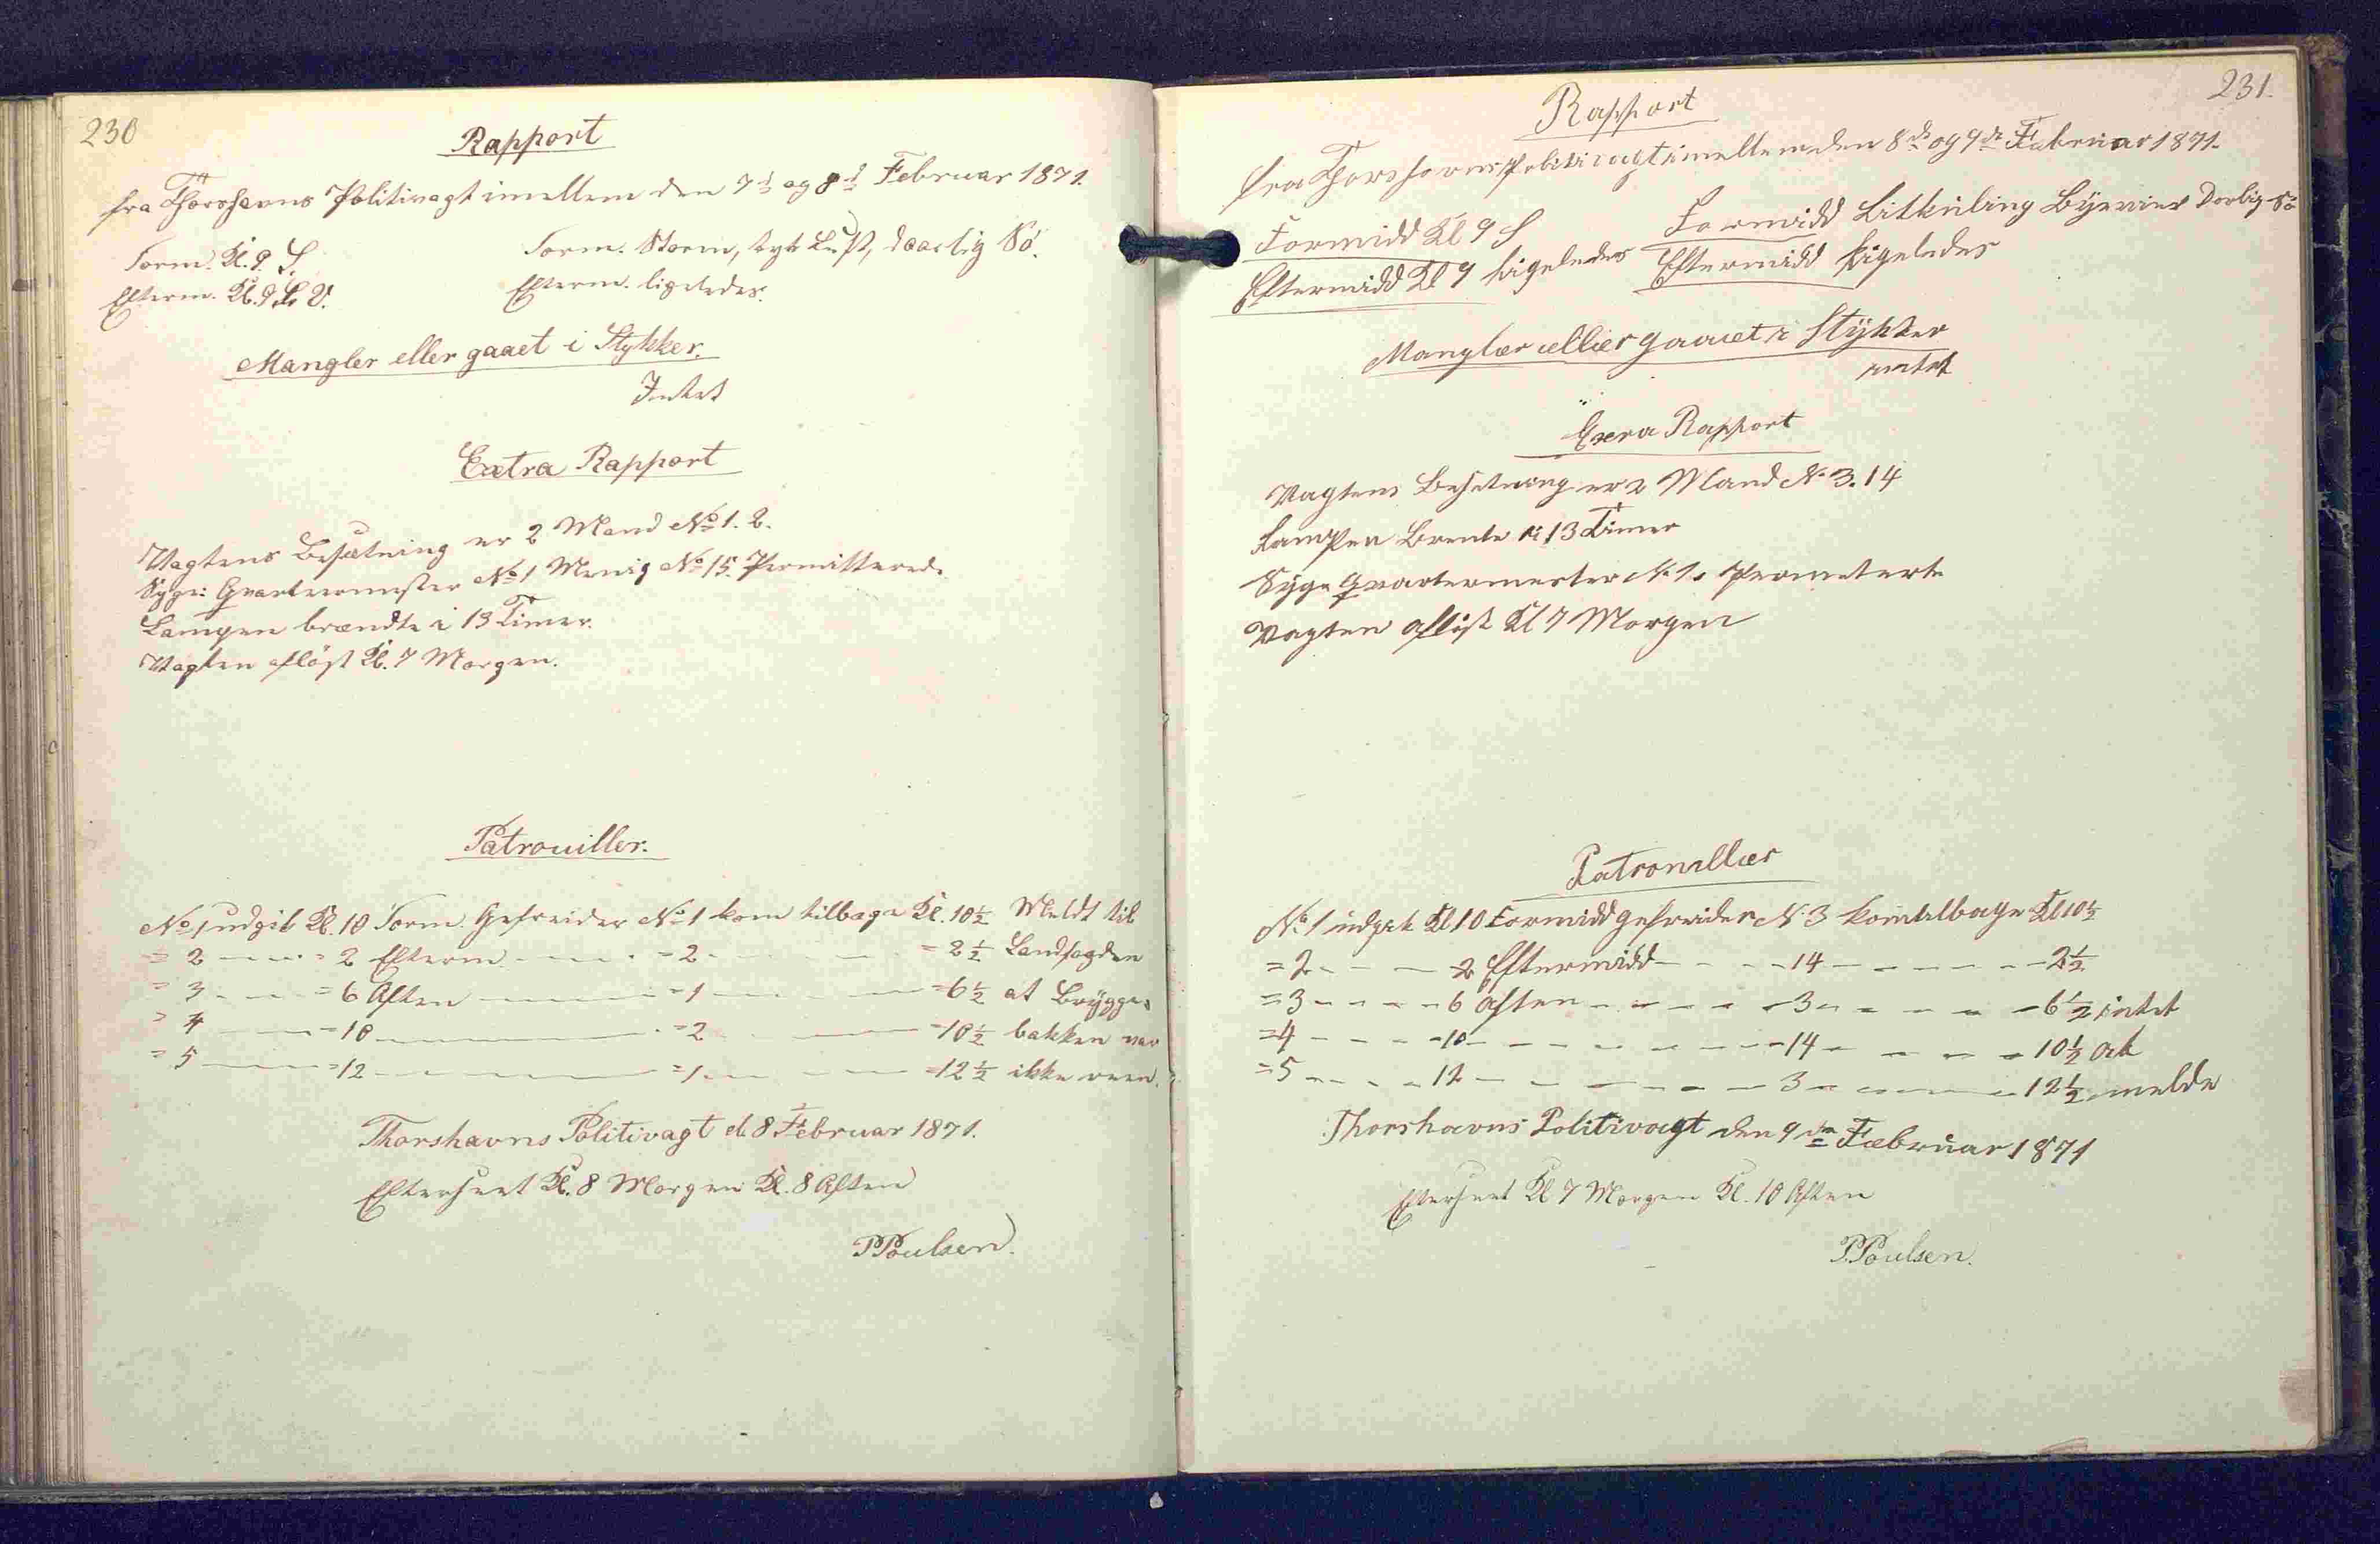 230
Rapport
fra Thorshavns Politivagt imellem den 7d og 8d Februar 1871.
Form. Kl. 9. S. Form. Storm, tyk Luft, daarlig Sö.
Efterm. Kl. 9 S. V. Efterm. ligeledes.
Mangler eller gaaet i Stykker.
Intet
Extra Rapport
Vagtens Besætning er 2 Mand No 1. 2.
Syge: Qvarteermester No 1 Menig No 15. Permitterede
Lampen brændte i 13 Timer.
Vagten aflöst Kl. 7 Morgen.
Patrouiller.
No 1 udgik Kl. 10 Form. Gefreider No 1 kom tilbage Kl. 10½ Meldt til
= 2 — — = 2 Efterm. — — = 2 — — = 2½ Landfogden
= 3 — — = 6 Aften — — = 1 — — = 6½ at Brygge-
= 4 — — = 10 — — = 2 — — = 10½ bakken var
= 5 — — = 12 — — = 1 — — = 12½ ikke reen.
Thorshavns Politivagt d. 8 Februar 1871.
Efterseet Kl. 8 Morgen Kl. 8 Aften
PPoulsen.
231.
Rapport
fra Thorshavns Politivagt imellem den 8de og 9de Februar 1871.
Formidd Kl 9 S Formidd Litkuling Byeviis Dorlig Sö
Eftermidd Kl 9 Ligeledes Eftermidd Ligeledes
Mangler eller gaaet i Stykker
intet
Exera Rapport
Vagtens Besetning er 2 Mand No 3. 14
Lampen Brente i 13 Timer
Syge Qvartermester No 1. Permeterte
Vagten aflist Kl 7 Morgen
Patroniller
No 1 udgek Kl 10 Formidd gefreider No 3 kom telbage Kl 10½
= 2 - - - 2 Eftermidd - - - 14 - - - - 2½
= 3 - - - 6 Aften - - - - 3 - - - - 6½ intet
= 4 - - - 10 - - - - - 14 - - - - 10½ At
= 5 - - - 12 - - - - - 3 - - - - 12½ melde
Thorshavns Politivagt den 9de Februar 1871
Efterseet Kl 7 Morgen Kl. 10 Aften
P.Poulsen.